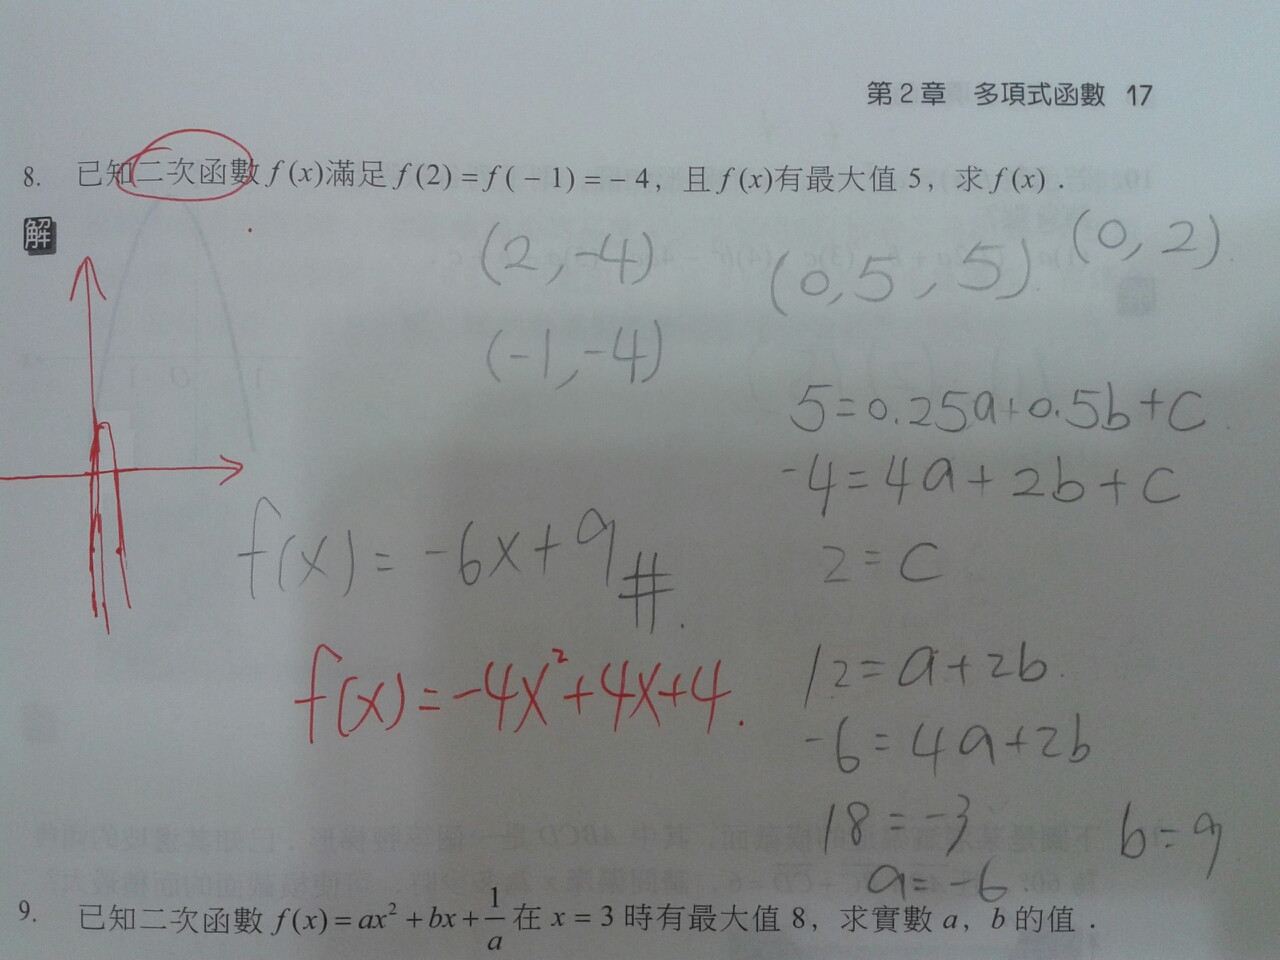 第2章 多項式函數 17
8. 已知二次函數 f(x)滿足 f(2)=f(-1)=-4，且 f(x)有最大值 5，求 f(x).
解
(2,-4) (0,5,5) (0,2)
(-1,-4)
5=0.25a+0.5b+c
-4=4a+2b+c
f(x)=-6x+9#.
2=c
f(x)=-4x²+4x+4.
12=a+2b
-6=4a+2b
18=-3
b=9
a=-6
9. 已知二次函數 f(x)=ax²+bx+1/a 在 x=3 時有最大值 8，求實數 a，b 的值.